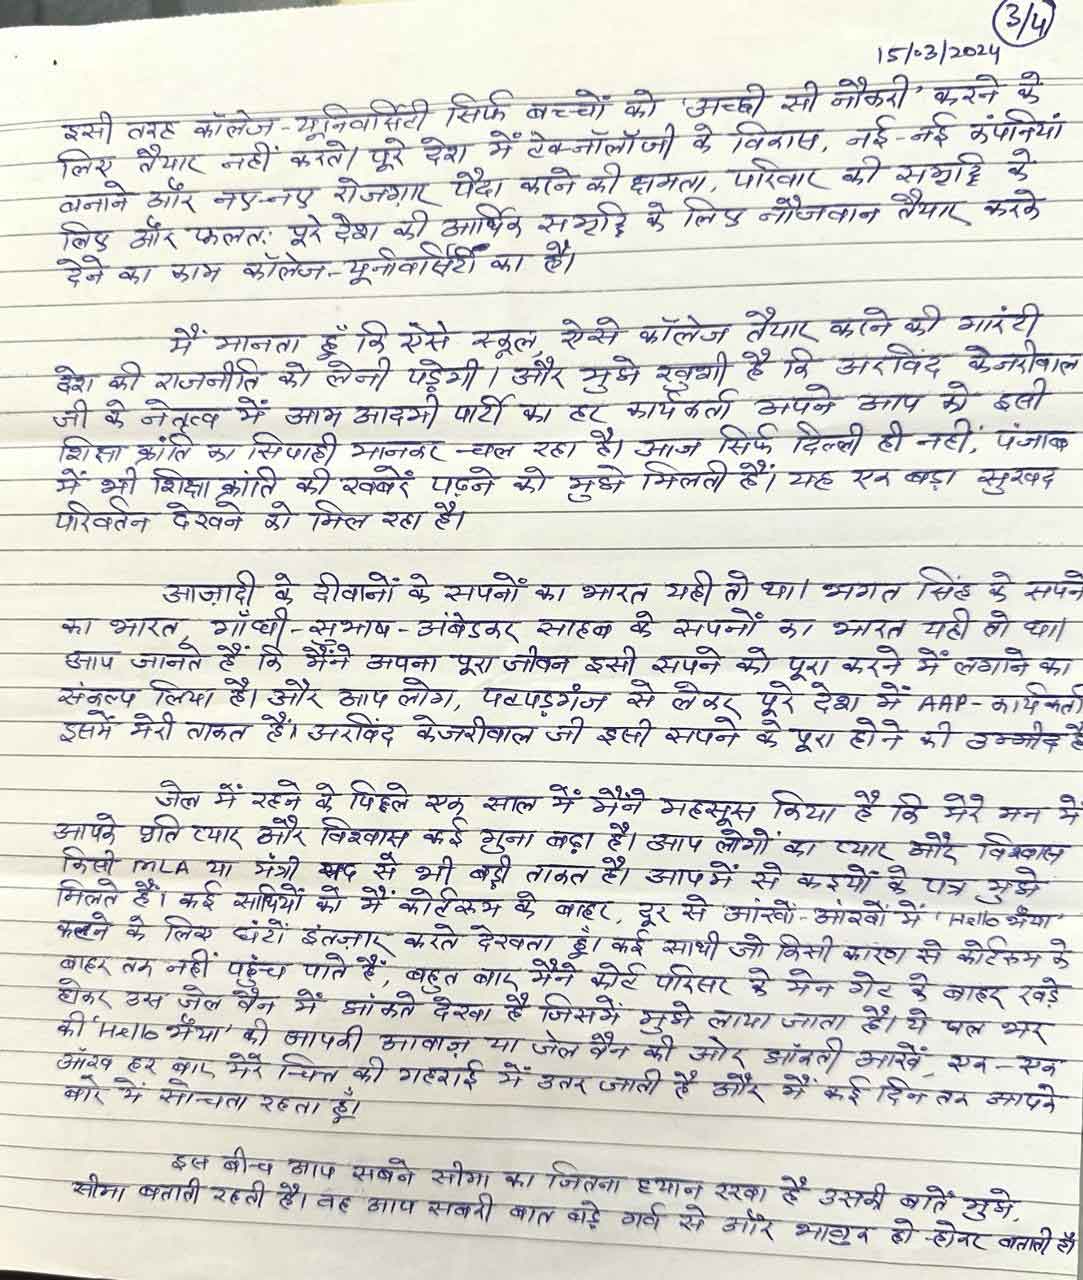 3/4
15/03/2024
इसी तरह कॉलेज-यूनिवर्सिटी सिर्फ बच्चों को 'अच्छी सी नौकरी' करने के
लिए तैयार नहीं करते। पूरे देश में टेक्नॉलॉजी के विकास, नई-नई कंपनियां
बनाने और नए-नए रोजगार पैदा करने की क्षमता, परिवार की समृद्धि के
लिए और फलत: पूरे देश की आर्थिक समृद्धि के लिए नौजवान तैयार करके
देने का काम कॉलेज-यूनीवर्सिटी का है।
मैं मानता हूँ कि ऐसे स्कूल, ऐसे कॉलेज तैयार करने की गारंटी
देश की राजनीति को लेनी पड़ेगी। और मुझे खुशी है कि अरविंद केजरीवाल
जी के नेतृत्व में आम आदमी पार्टी का हर कार्यकर्ता अपने आप को इसी
शिक्षा क्रांति का सिपाही मानकर चल रहा है। आज सिर्फ दिल्ली ही नहीं, पंजाब
में भी शिक्षा क्रांति की खबरें पढ़ने को मुझे मिलती हैं। यह एक बड़ा सुखद
परिवर्तन देखने को मिल रहा है।
आज़ादी के दीवानों के सपनों का भारत यही तो था। भगत सिंह के सपने
का भारत, गाँधी-सुभाष-अंबेडकर साहब के सपनों का भारत यही तो था।
आप जानते हैं कि मैंने अपना पूरा जीवन इसी सपने को पूरा करने में लगाने का
संकल्प लिया है। और आप लोग, पटपड़गंज से लेकर पूरे देश में AAP-कार्यकर्ता
इसमें मेरी ताकत हैं। अरविंद केजरीवाल जी इसी सपने के पूरा होने की उम्मीद हैं
जेल में रहने के पिछले एक साल में मैंने महसूस किया है कि मेरे मन में
आपके प्रति प्यार और विश्वास कई गुना बढ़ा है। आप लोगों का प्यार और विश्वास
किसी MLA या मंत्री पद से भी बड़ी ताकत है। आपमें से कइयों के पत्र मुझे
मिलते हैं। कई साथियों को मैं कोर्टरूम के बाहर, दूर से आंखों-आंखों में 'Hello भैया'
कहने के लिए घंटों इंतज़ार करते देखता हूँ। कई साथी जो किसी कारण से कोर्टरूम के
बाहर तक नहीं पहुंच पाते हैं, बहुत बार मैंने कोर्ट परिसर के मेन गेट के बाहर खड़े
होकर उस जेल वैन में झांकते देखा है जिसमें मुझे लाया जाता है। ये पल भर
की 'Hello भैया' की आपकी आवाज़ या जेल वैन की ओर झाँकती आखें, एक-एक
आँख हर बार मेरे चित्त की गहराई में उतर जाती है और मैं कई दिन तक आपके
बारे में सोचता रहता हूँ।
इस बीच आप सबने सीमा का जितना ध्यान रखा है उसकी बातें मुझे,
सीमा बताती रहती है। वह आप सबकी बात बड़े गर्व से और भावुक हो-होकर बताती है।